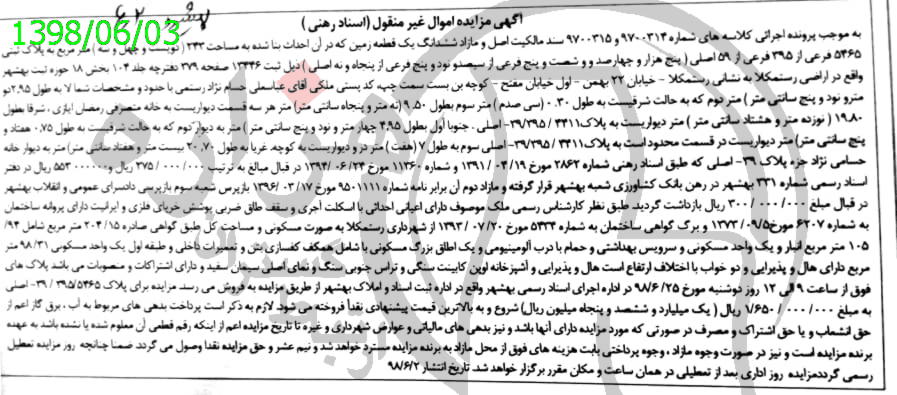 1398/06/03
آگهی مزایده اموال غیر منقول (اسناد رهنی)
به موجب پرونده اجرائی کلاسه های شماره ۹۷۰۰۳۱۴ و ۹۷۰۰۳۱۵ سند مالکیت اصل و مازاد ششدانگ یک قطعه زمین که در آن احداث بنا شده به مساحت ۲۴۳ (دویست و چهل و سه) متر مربع به پلاک ثبتی
۵۴۶۵ فرعی از ۳۹۵ فرعی از ۵۹ اصلی (پنج هزار و چهارصد و شصت و پنج فرعی از سیصد و نود و پنج فرعی از پنجاه و نه اصلی) ذیل ثبت ۱۳۴۴۶ صفحه ۳۷۹ دفترچه جلد ۱۰۴ بخش ۱۸ حوزه ثبت بهشهر
واقع در اراضی رستمکلا به نشانی رستمکلا - خیابان ۲۲ بهمن - اول خیابان مفتح - کوچه بن بست سمت چپ کد پستی ملکی آقای عباسعلی حسام نژاد رستمی با حدود و مشخصات شمالا به طول ۲.۹۵(دو
مترو نود و پنج سانتی متر) متر دوم که به حالت شرقیست به طول ۰.۳۰ (سی صدم) متر سوم بطول ۹.۵۰ (نه متر و پنجاه سانتی متر) متر هر سه قسمت دیواریست به خانه متصرفی رمضان ایازی، شرقا بطول
۱۹.۸۰ (نوزده متر و هشتاد سانتی متر) متر دیواریست به پلاک ۳۴۱۱/۳۹۵/۳۹- اصلی. جنوبا اول بطول ۴.۹۵ چهار متر و نود و پنج سانتی متر) متر به دیوار دوم که به حالت شرقیست به طول ۰.۷۵ هفتاد و
پنج سانتی متر) متر دیواریست در قسمت محدود است به پلاک ۳۴۱۱/۳۹۵/۳۹- اصلی سوم به طول ۷ (هفت) متر در و دیواریست به کوچه. غربا به طول ۲۰.۷۰ بیست متر و هفتاد سانتی متر) متر به دیوار خانه
حسامی نژاد جزء پلاک ۳۹- اصلی که طبق اسناد رهنی شماره ۲۸۶۲ مورخ ۱۳۹۱/۰۴/۱۹ و شماره ۱۱۳۶۰ مورخ ۱۳۹۴/۰۶/۲۴ در قبال مبالغ به ترتیب ۳۷۵/۰۰۰/۰۰۰ ریال و ۵۵۳۰۰۰۰۰۰ ریال در دفتر
اسناد رسمی شماره ۳۳۱ بهشهر در رهن بانک کشاورزی شعبه بهشهر قرار گرفته و مازاد دوم آن برابر نامه شماره ۹۵۰۱۱۱۱ مورخ ۱۳۹۶/۰۳/۱۷ بازپرس شعبه سوم بازپرسی دادسرای عمومی و انقلاب بهشهر
در قبال مبلغ ۳۰۰/۰۰۰/۰۰۰ ریال بازداشت گردید. طبق نظر کارشناس رسمی ملک موصوف دارای اعیانی احداثی با اسکلت آجری و سقف طاق ضربی پوشش خرپای فلزی و ایرانیت دارای پروانه ساختمان
به شماره ۶۲۰۷ مورخ ۱۳۷۳/۰۹/۵ و برگ گواهی ساختمان به شماره ۵۴۳۴ مورخ ۱۳۹۳/۰۷/۲۰ از شهرداری رستمکلا به صورت مسکونی و مساحت کل طبق گواهی صادره ۲۰۴/۱۵ متر مربع شامل ۹۴/
۱۰۵ متر مربع انبار و یک واحد مسکونی و سرویس بهداشتی و حمام با درب آلومینیومی و یک اطاق بزرگ مسکونی با شامل همکف کفسازی بتن و تعمیرات داخلی و طبقه اول یک واحد مسکونی ۹۸/۳۱ متر
مربع دارای هال و پذیرایی و دو خواب با اختلاف ارتفاع است هال و پذیرایی و آشپزخانه اوپن کابینت سنگی و تراس جنوبی سنگ و نمای اصلی سیمان سفید و دارای اشتراکات و منصوبات می باشد پلاک های
فوق از ساعت ۹ الی ۱۲ روز دوشنبه مورخ ۹۸/۶/۲۵ در اداره اجرای اسناد رسمی بهشهر واقع در اداره ثبت اسناد و املاک بهشهر از طریق مزایده به فروش می رسد. مزایده برای پلاک ۵۴۶۵/۳۹۵/۳۹- اصلی
به مبلغ ۱/۶۵۰/۰۰۰/۰۰۰ ریال (یک میلیارد و ششصد و پنجاه میلیون ریال) شروع و به بالاترین قیمت پیشنهادی نقدا فروخته می شود. لازم به ذکر است پرداخت بدهی های مربوط به آب، برق گاز اعم از
حق انشعاب و یا حق اشتراک و مصرف در صورتی که مورد مزایده دارای آنها باشد و نیز بدهی های مالیاتی و عوارض شهرداری و غیره تا تاریخ مزایده اعم از اینکه رقم قطعی آن معلوم شده یا نشده باشد به عهده
برنده مزایده است و نیز در صورت وجوه مازاد، وجوه پرداختی بابت هزینه های فوق از محل مازاد به برنده مزایده مسترد خواهد شد و نیم عشر و حق مزایده نقدا وصول می گردد. ضمنا چنانچه روز مزایده تعطیل
رسمی گردد مزایده روز اداری بعد از تعطیلی در همان ساعت و مکان مقرر برگزار خواهد شد. تاریخ انتشار ۹۸/۶/۲